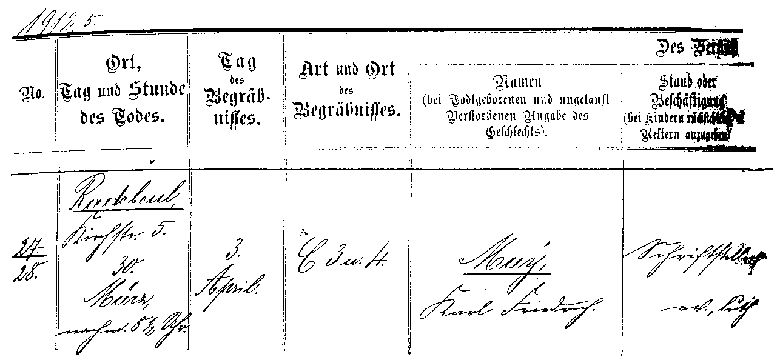 1912. 5.
No.
Ort,
Tag und Stunde
des Todes.
Tag
des
Begräb-
nisses.
Art und Ort
des
Begräbnisses.
Des
Namen
(bei Todtgeborenen und ungetauft
Verstorbenen Angabe des
Geschlechts).
Stand oder
Beschäftigung
(bei Kindern
Aeltern anzugeben
27
28.
Radebeul,
Kirchstr. 5.
30.
März,
nachm. 8½ Uhr.
3.
April.
C 3 u. 4.
May,
Karl Friedrich.
Schriftsteller
ev. luth